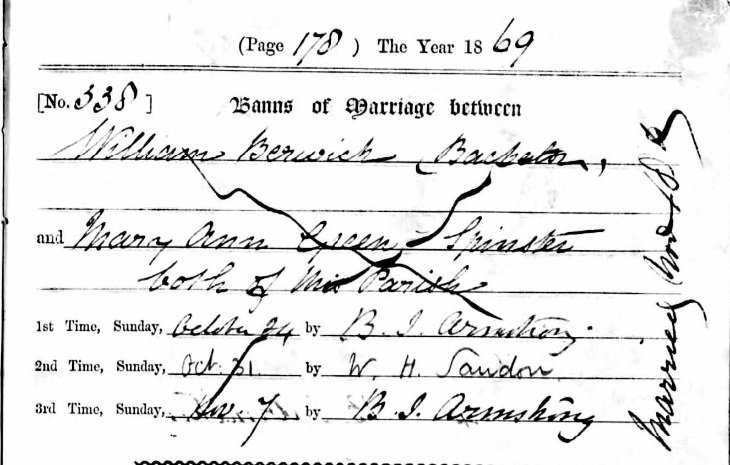 (Page 178) The Year 1869
[No. 338] Banns of Marriage between
William Berwick Bachelor,
and Mary Ann Green Spinster
both of this Parish
1st Time, Sunday, October 24 by B. J. Armstrong.
2nd Time, Sunday, Oct. 31 by W. H.
3rd Time, Sunday, Nov 7 by B. J. Armstrong
Married Nov 18